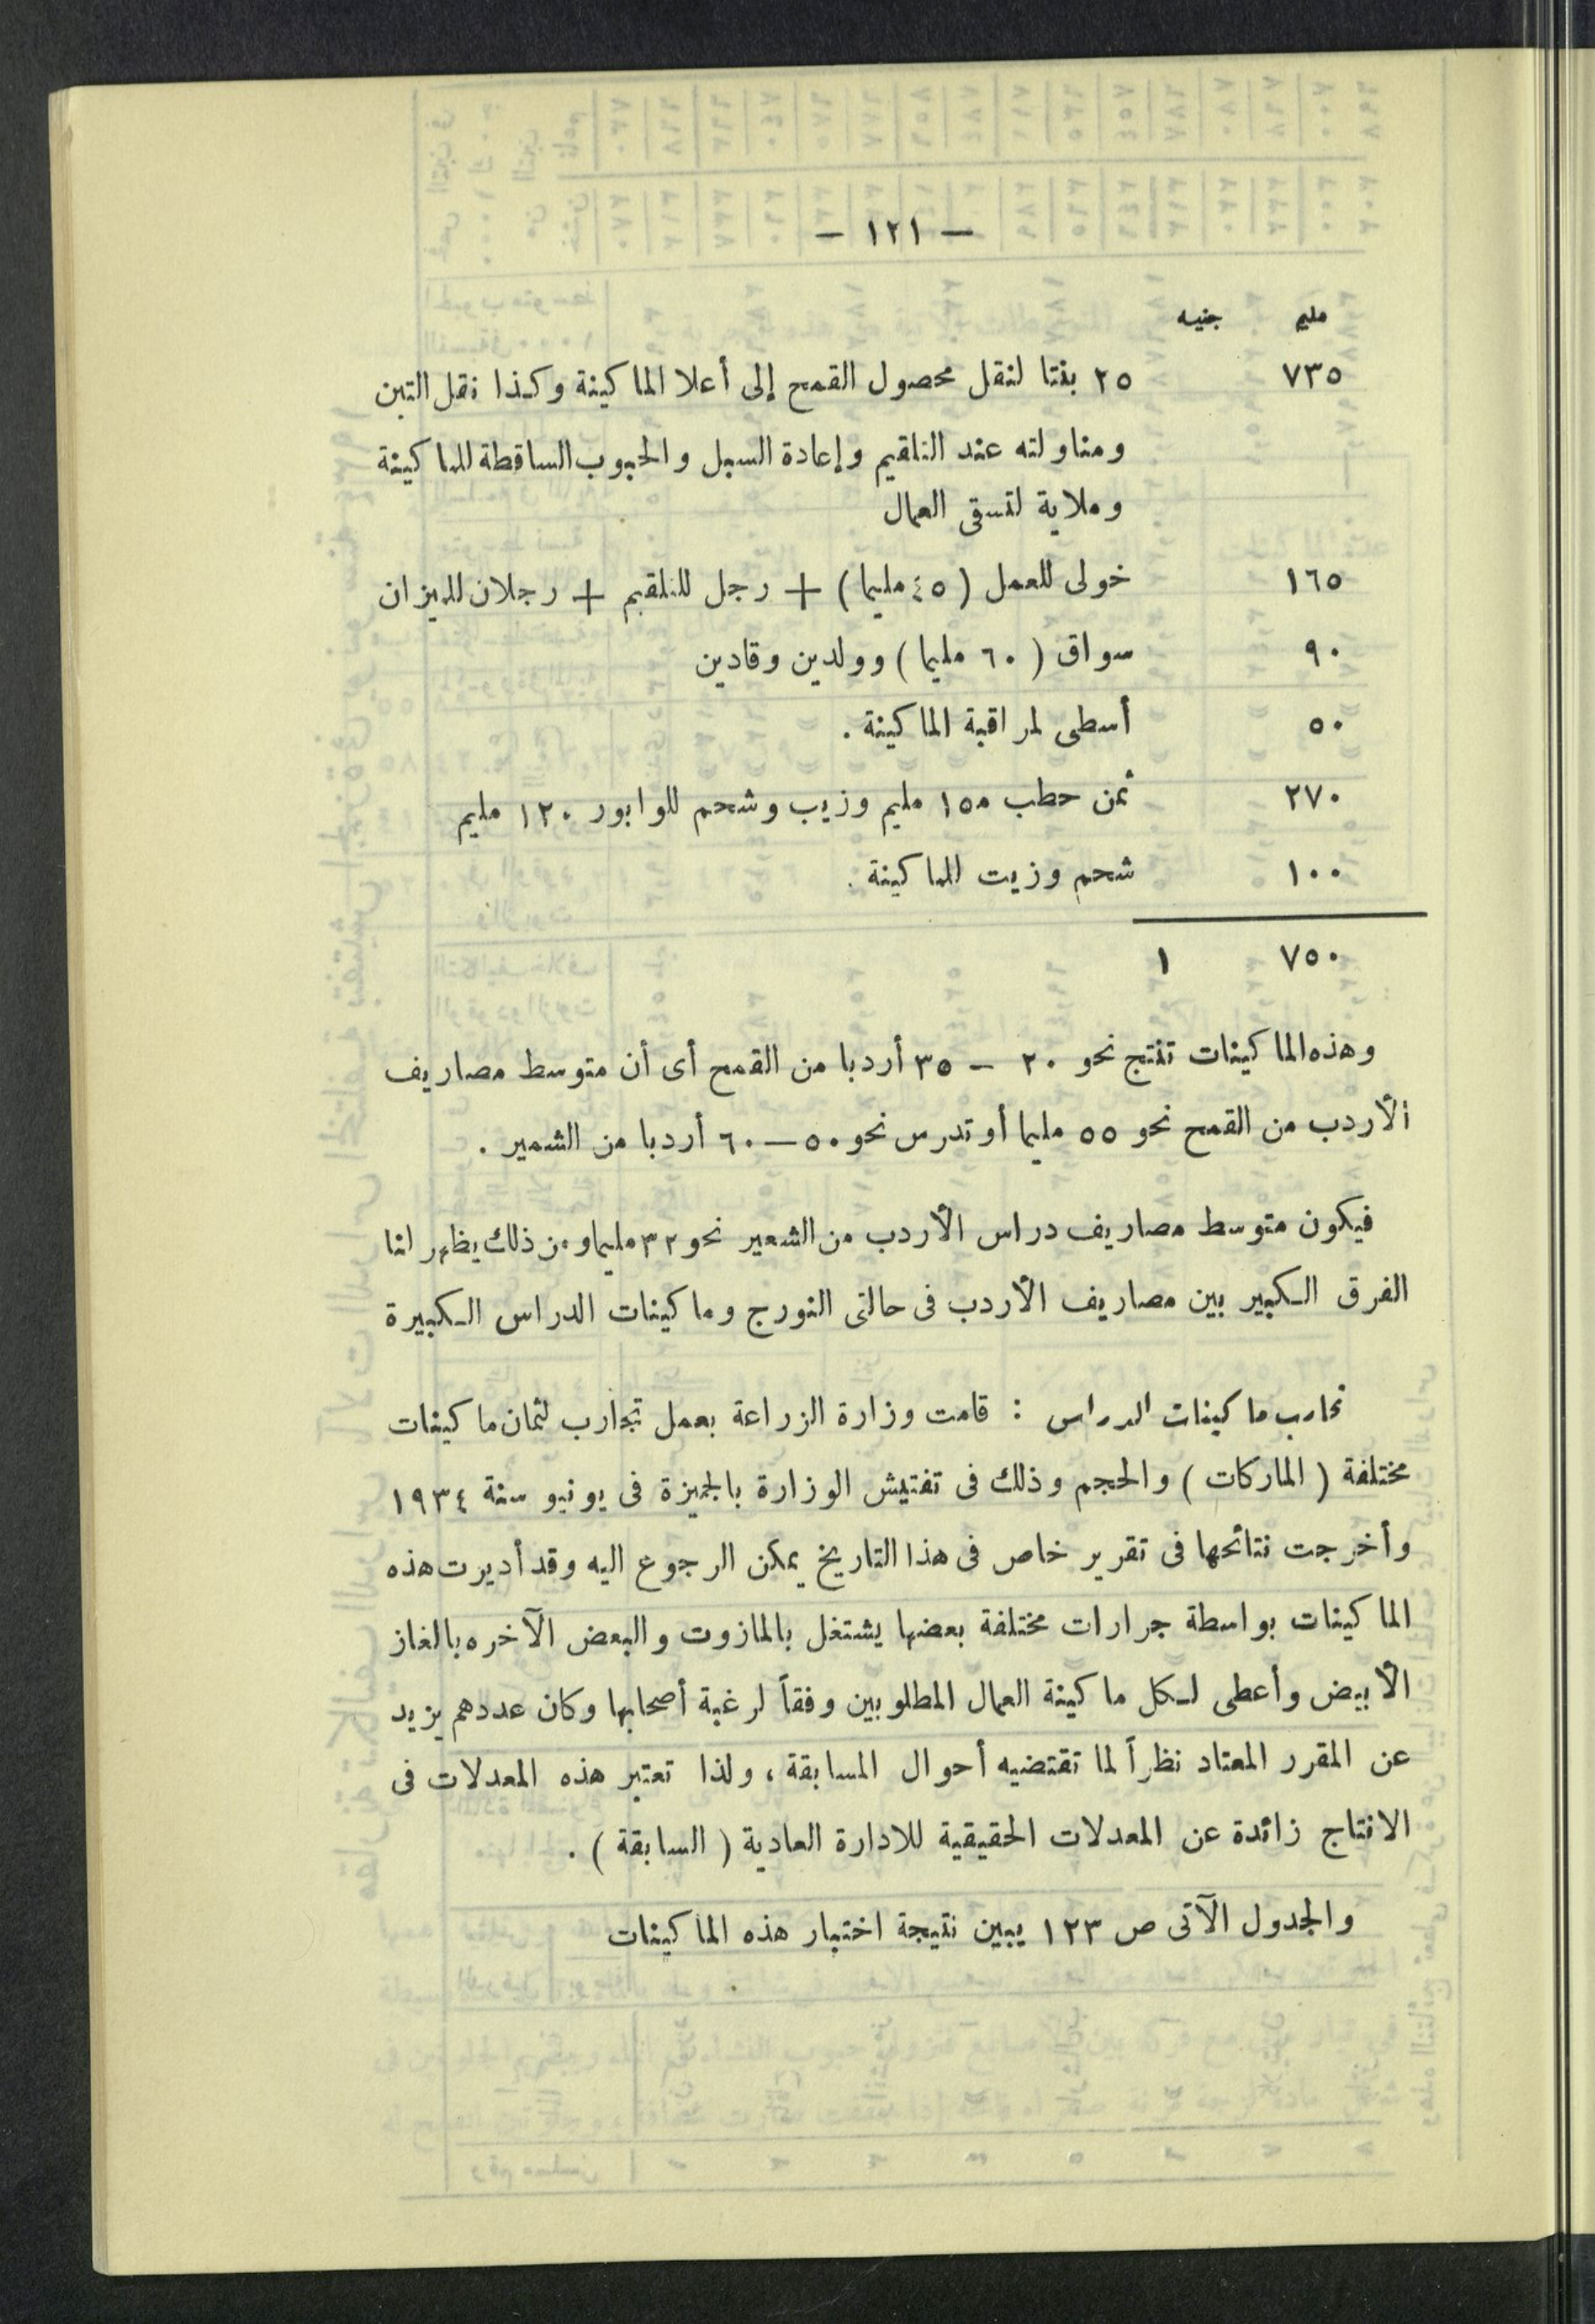 — ١٢١ —
مليم جنيه
٧٣٥ ٢٥ بنتا لنقل محصول القمح إلى أعلا الماكينة وكذا نقل التبن
ومناولته عند التلقيم وإعادة السبل والحبوب الساقطة للماكينة
وملاية لتسقى العمال
١٦٥ خولى للعمل (٤٥ مليما) + رجل للتلقيم + رجلان للميزان
٩٠ سواق (٦٠ مليما) وولدين وقادين
٥٠ أسطى لمراقبة الماكينة .
٢٧٠ ثمن حطب ١٥٠ مليم وزيب وشحم للوابور ١٢٠ مليم
١٠٠ شحم وزيت للماكينة .
٧٥٠ ١
وهذه الماكينات تنتج نحو ٢٠ — ٣٥ أردبا من القمح أى أن متوسط مصاريف
الأردب من القمح نحو ٥٥ مليما أو تدرس نحو ٥٠ — ٦٠ أردبا من الشعير .
فيكون متوسط مصاريف دراس الأردب من الشعير نحو ٣٢ مليما ومن ذلك يظهر لنا
الفرق الكبير بين مصاريف الأردب فى حالتى النورج وماكينات الدراس الكبيرة
تجارب ماكينات الدراس : قامت وزارة الزراعة بعمل تجارب لثمان ماكينات
مختلفة ( الماركات ) والحجم وذلك فى تفتيش الوزارة بالجميزة فى يونيو سنة ١٩٣٤
وأخرجت نتائجها فى تقرير خاص فى هذا التاريخ يمكن الرجوع اليه وقد أديرت هذه
الماكينات بواسطة جرارات مختلفة بعضها يشتغل بالمازوت والبعض الآخره بالغاز
الأبيض وأعطى لكل ماكينة العمال المطلوبين وفقاً لرغبة أصحابها وكان عددهم يزيد
عن المقرر المعتاد نظراً لما تقتضيه أحوال المسابقة ، ولذا تعتبر هذه المعدلات فى
الانتاج زائدة عن المعدلات الحقيقية للادارة العادية ( السابقة ) .
والجدول الآتى ص ١٢٣ يبين نتيجة اختبار هذه الماكينات